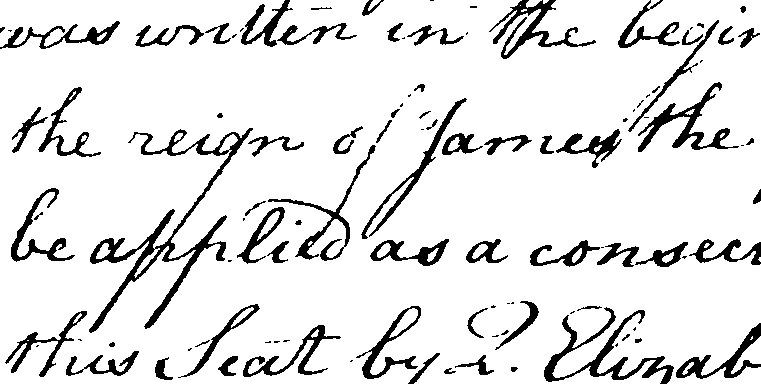 was written in the begin
the reign of James the
be applied as a consecr
this Seat by Q. Elizab